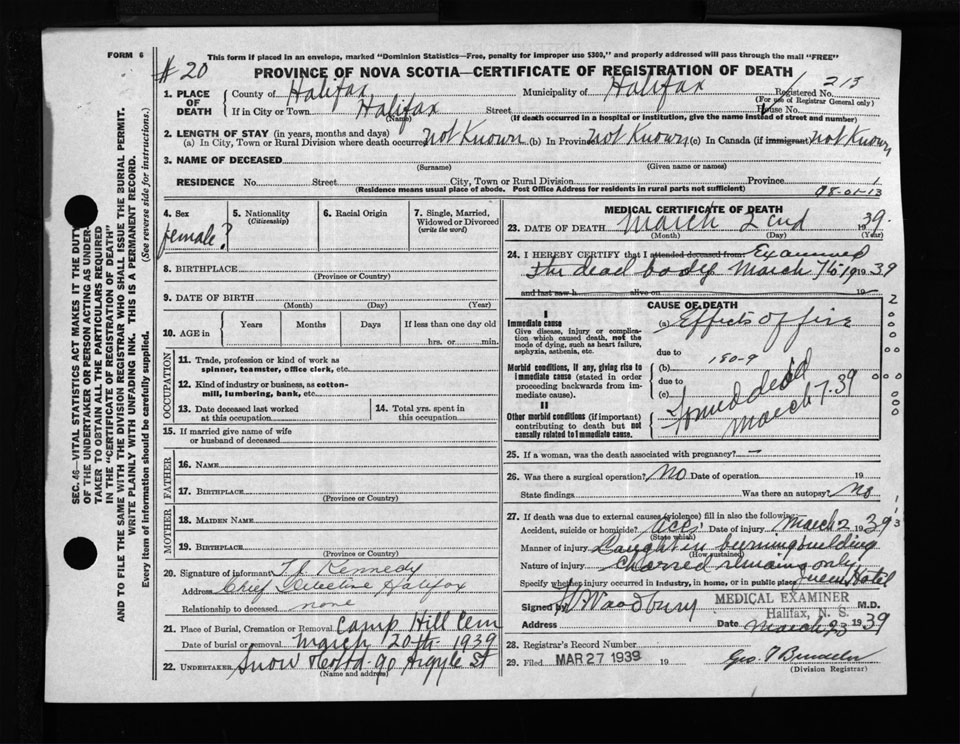 FORM 6
This form if placed in an envelope, marked "Dominion Statistics—Free, penalty for improper use $300," and properly addressed will pass through the mail "FREE"
#20
PROVINCE OF NOVA SCOTIA—CERTIFICATE OF REGISTRATION OF DEATH
1. PLACE OF DEATH
County of Halifax Municipality of Halifax Registered No. 213
(For use of Registrar General only)
If in City or Town Halifax Street House No.
(Name) (If death occurred in a hospital or institution, give the name instead of street and number)
2. LENGTH OF STAY (in years, months and days)
(a) In City, Town or Rural Division where death occurred not Known (b) In Province not Known (c) In Canada (if immigrant) not Known
3. NAME OF DECEASED
(Surname) (Given name or names)
RESIDENCE No. Street City, Town or Rural Division Province 1
(Residence means usual place of abode. Post Office Address for residents in rural parts not sufficient) 08-01-13
4. Sex
female?
5. Nationality
(Citizenship)
6. Racial Origin
7. Single, Married, Widowed or Divorced
(write the word)
8. BIRTHPLACE
(Province or Country)
9. DATE OF BIRTH
(Month) (Day) (Year)
10. AGE in
Years Months Days If less than one day old
hrs. or min.
OCCUPATION
11. Trade, profession or kind of work as
spinner, teamster, office clerk, etc.
12. Kind of industry or business, as cotton-
mill, lumbering, bank, etc.
13. Date deceased last worked
at this occupation
14. Total yrs. spent in
this occupation
15. If married give name of wife
or husband of deceased
FATHER
16. NAME
17. BIRTHPLACE
(Province or Country)
MOTHER
18. MAIDEN NAME
19. BIRTHPLACE
(Province or Country)
20. Signature of informant Kennedy
Address Chief Detective Halifax
Relationship to deceased none
21. Place of Burial, Cremation or Removal Camp Hill Cem
Date of burial or removal March 20th 1939
22. UNDERTAKER Snow 90 Argyle St
(Name and address)
MEDICAL CERTIFICATE OF DEATH
23. DATE OF DEATH March 2nd 1939
(Month) (Day) (Year)
24. I HEREBY CERTIFY that I attended deceased from Examined
The dead body March 7th 1939
and last saw h alive on 19
CAUSE OF DEATH
I
Immediate cause
Give disease, injury or complication which caused death, not the mode of dying, such as heart failure, asphyxia, asthenia, etc.
(a) Effects of fire
due to
180-9
Morbid conditions, if any, giving rise to immediate cause (stated in order proceeding backwards from immediate cause).
(b)
due to
(c)
Found dead
March 7. 39
II
Other morbid conditions (if important) contributing to death but not causally related to immediate cause.
25. If a woman, was the death associated with pregnancy? —
26. Was there a surgical operation? No Date of operation 19
State findings Was there an autopsy? No
27. If death was due to external causes (violence) fill in also the following:
Accident, suicide or homicide? Acc. Date of injury March 2 1939
(State which)
Manner of injury Caught in burning building
(How sustained)
Nature of injury Charred remains only
Specify whether injury occurred in industry, in home, or in public place Queen Hotel
Signed by Woodbury M.D.
MEDICAL EXAMINER
Halifax, N. S.
Address Date March 23 1939
28. Registrar's Record Number
29. Filed MAR 27 1939 19
(Division Registrar)
SEC. 46—VITAL STATISTICS ACT MAKES IT THE DUTY
OF THE UNDERTAKER OR PERSON ACTING AS UNDER-
TAKER TO OBTAIN ALL THE PARTICULARS REQUIRED
IN THE "CERTIFICATE OF REGISTRATION OF DEATH"
AND TO FILE THE SAME WITH THE DIVISION REGISTRAR WHO SHALL ISSUE THE BURIAL PERMIT.
WRITE PLAINLY WITH UNFADING INK. THIS IS A PERMANENT RECORD.
Every item of information should be carefully supplied. (See reverse side for instructions.)